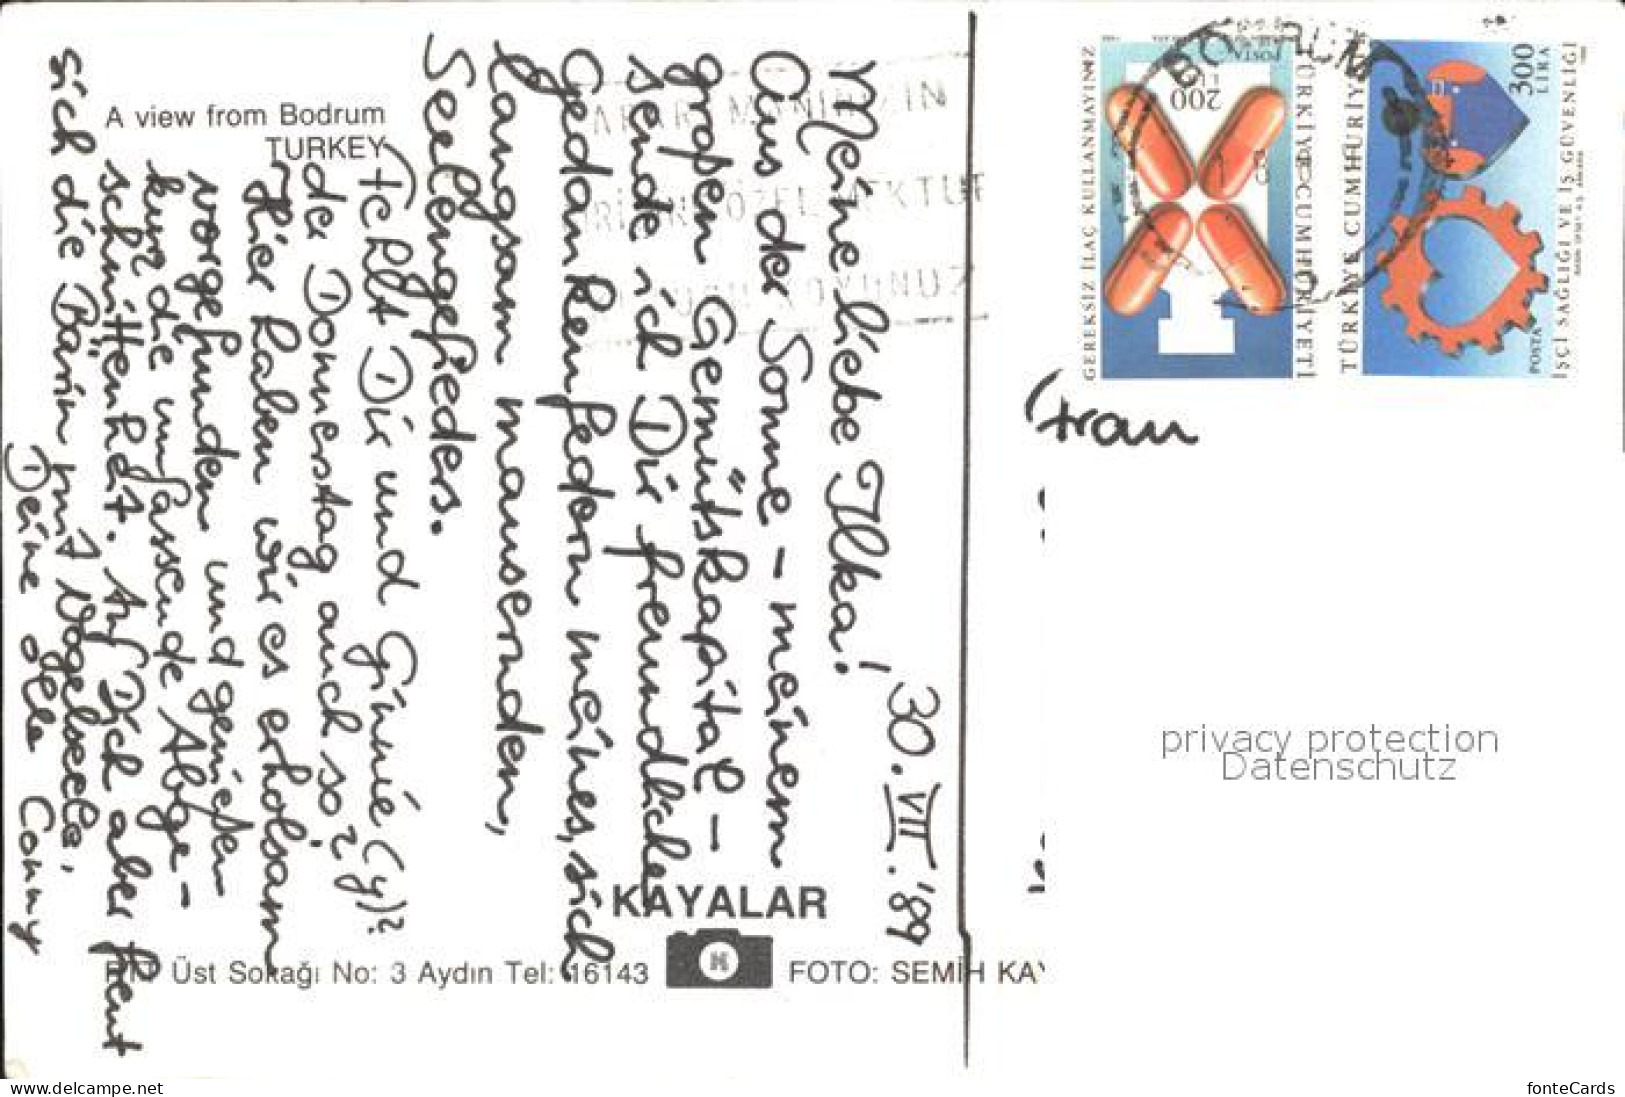 30. VII. '89
Meine liebe Ilka!
Aus der Sonne – meinem
großen Gemütskapital –
sende ich Dir freundliche
Gedankenfedern meines, sich
langsam mausernden,
Seelengefieders.
Fehlt Dir und Ginnie (y)?
der Donnerstag auch so?
Hier haben wir es erholsam
vorgefunden und genießen
kurz die umfassende Abge-
schnittenheit. Auf Dich aber freut
sich die Bärin mit Vogelseele,
Deine olle Conny
A view from Bodrum
TURKEY
KAYALAR
Üst Sokağı No: 3 Aydın Tel: 16143
FOTO: SEMİH KAY
Frau
GEREKSİZ İLAÇ KULLANMAYINIZ
POSTA
200
LİRA
TÜRKİYE CUMHURİYETİ
TÜRKİYE CUMHURİYETİ
300
LİRA
POSTA
İŞÇİ SAĞLIĞI VE İŞ GÜVENLİĞİ
BODRUM
privacy protection
Datenschutz
www.delcampe.net
fonteCards